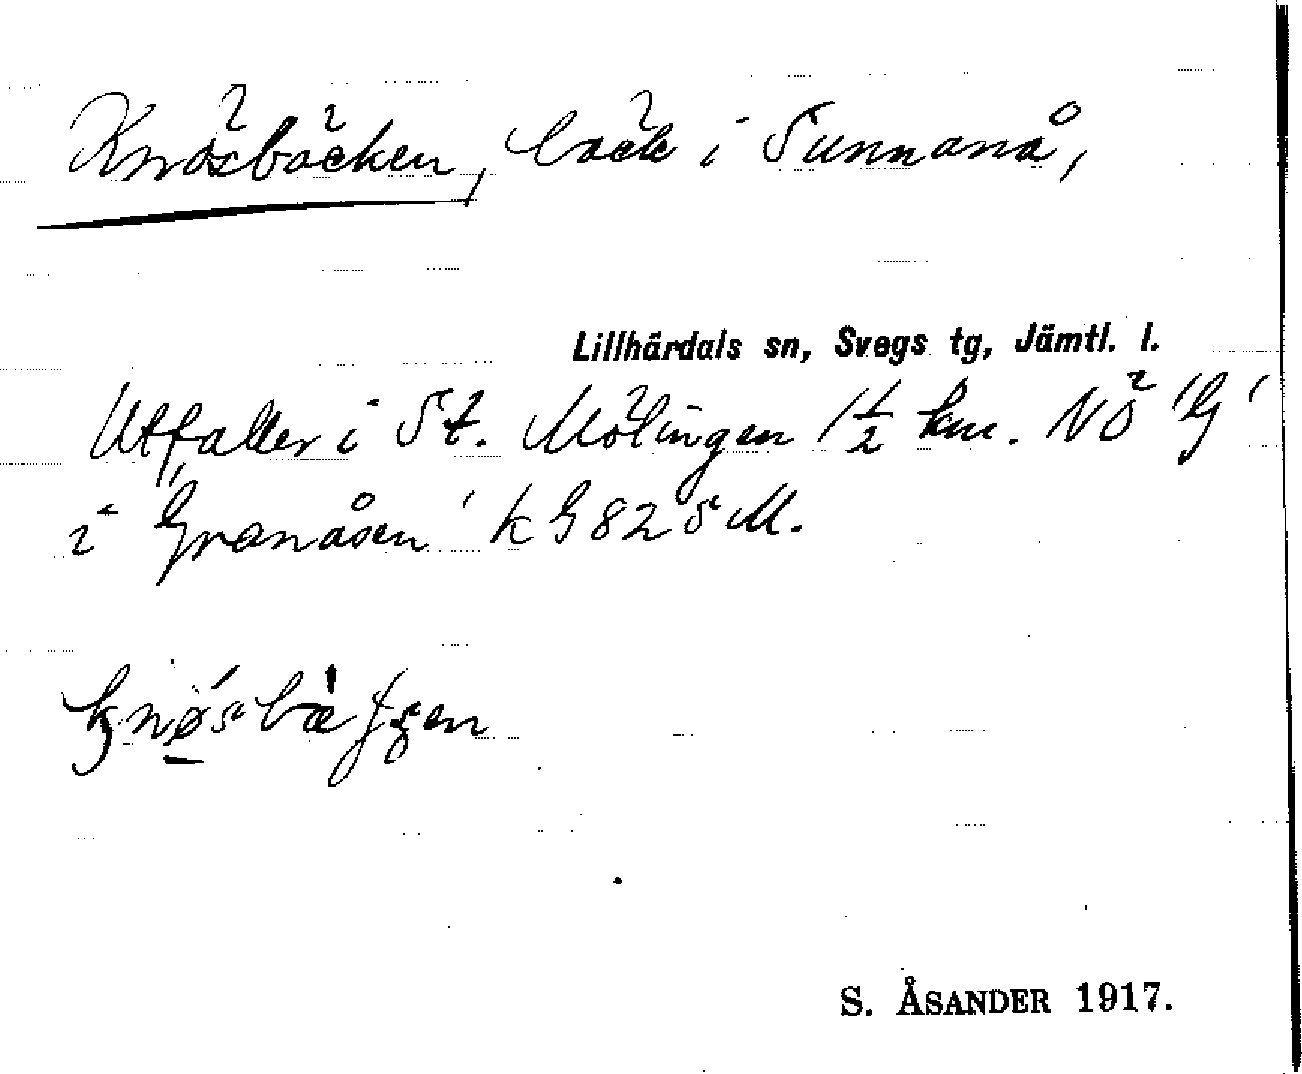 Knösbäcken, bäck i Sunnanå,
Lillhärdals sn, Svegs tg, Jämtl. l.
Utfaller i St. Mölingen 1 1/2 km. NÖ 'G'
i 'Granåsen' k G 82 s M.
S. ÅSANDER 1917.